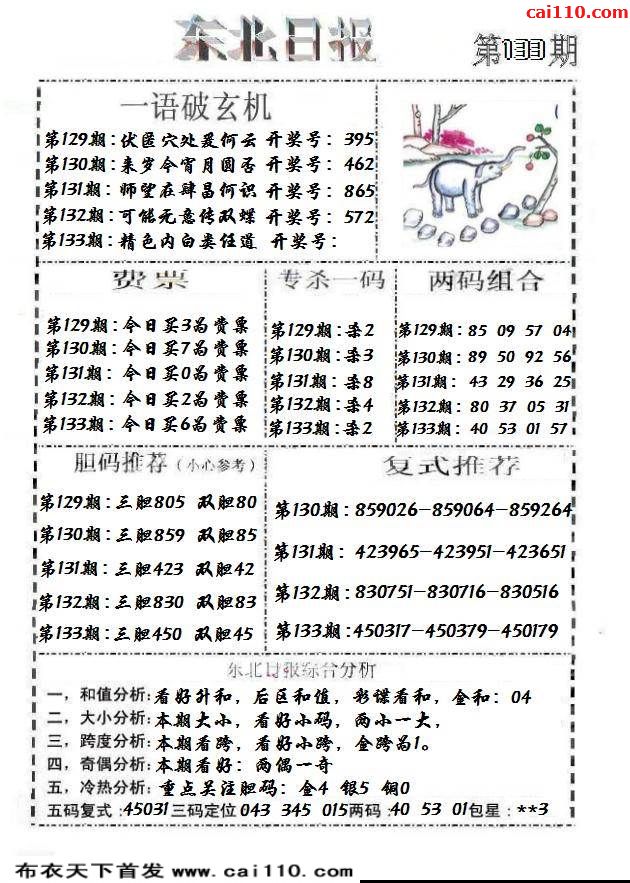 cai110.com
东北日报 第133期
一语破玄机
第129期:伏匿穴处爰何云 开奖号: 395
第130期:来岁今宵月圆否 开奖号: 462
第131期:师望在肆昌何识 开奖号: 865
第132期:可能无意传双蝶 开奖号: 572
第133期:精色内白类任道 开奖号:
费票
第129期:今日买3为费票
第130期:今日买7为费票
第131期:今日买0为费票
第132期:今日买2为费票
第133期:今日买6为费票
专杀一码
第129期:杀2
第130期:杀3
第131期:杀8
第132期:杀4
第133期:杀2
两码组合
第129期: 85 09 57 04
第130期: 89 50 92 56
第131期: 43 29 36 25
第132期: 80 37 05 31
第133期: 40 53 01 57
胆码推荐(小心参考)
第129期:三胆805 双胆80
第130期:三胆859 双胆85
第131期:三胆423 双胆42
第132期:三胆830 双胆83
第133期:三胆450 双胆45
复式推荐
第130期:859026-859064-859264
第131期:423965-423951-423651
第132期:830751-830716-830516
第133期:450317-450379-450179
东北日报综合分析
一,和值分析:看好升和,后区和值,彩蝶看和,金和:04
二,大小分析:本期大小,看好小码,两小一大,
三,跨度分析:本期看跨,看好小跨,金跨为1。
四,奇偶分析:本期看好:两偶一奇
五,冷热分析:重点关注胆码:金4 银5 铜0
五码复式:45031三码定位043 345 015两码:40 53 01包星:**3
布衣天下首发 www.cai110.com